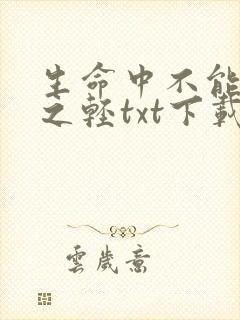 生命中不能
之輕txt下載
雲歲意